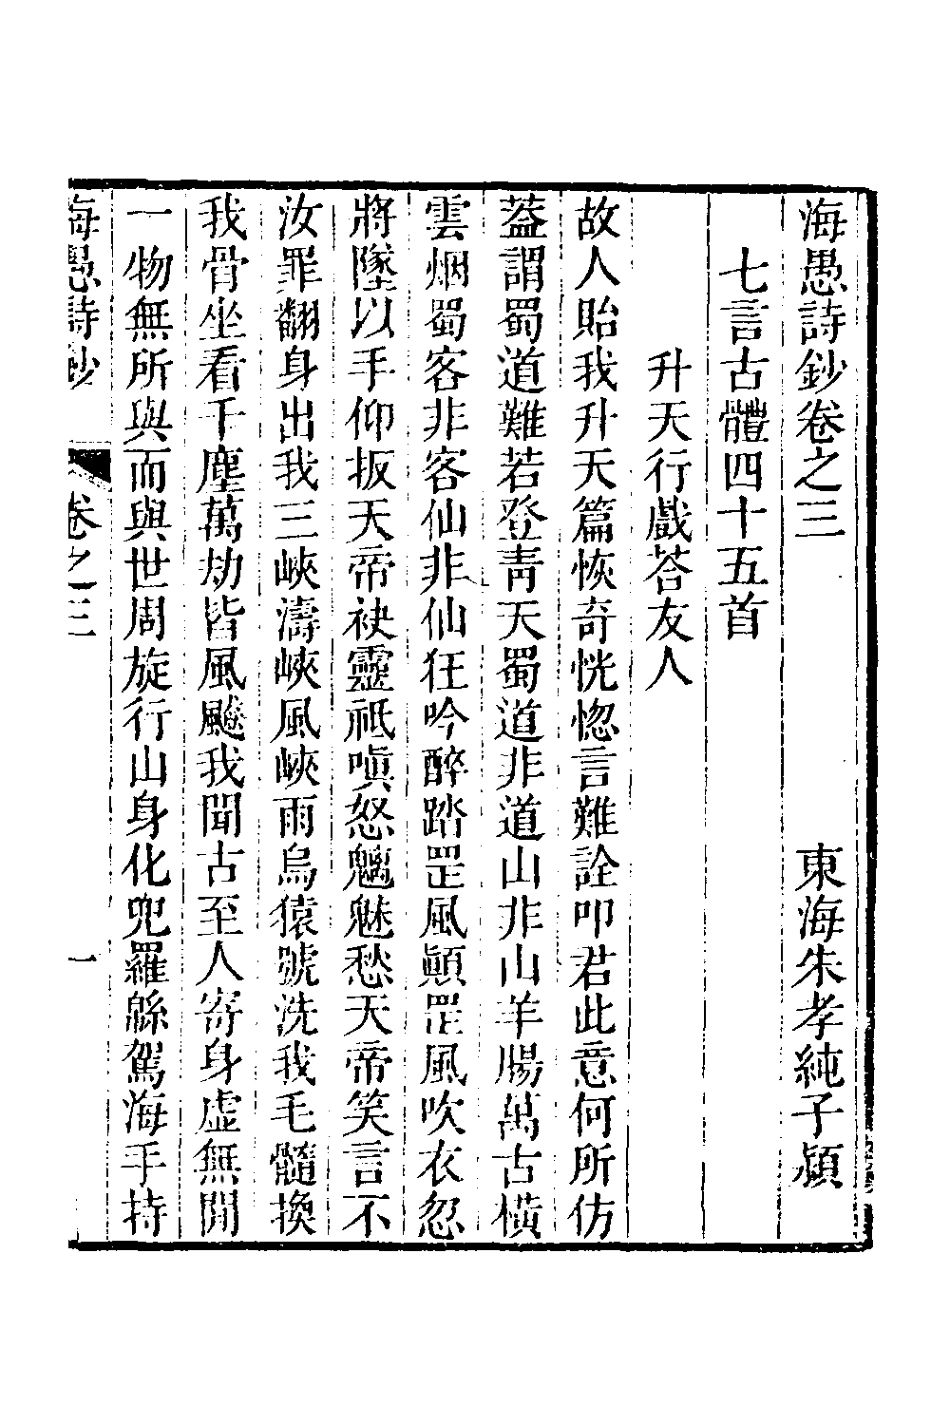 海愚詩鈔卷之三
東海朱孝純子潁
七言古體四十五首
升天行戲荅友人
故人貽我升天篇恢奇恍惚言難詮叩君此意何所仿
葢謂蜀道難若登靑天蜀道非道山非山羊腸萬古橫
雲烟蜀客非客仙非仙狂吟醉踏罡風顚罡風吹衣忽
將墜以手仰扳天帝袂靈祇嗔怒魑魅愁天帝笑言不
汝罪翻身出我三峽濤峽風峽雨烏猿號洗我毛髓換
我骨坐看千塵萬劫皆風飈我聞古至人寄身虛無閒
一物無所與而與世周旋行山身化兜羅緜駕海手持
海愚詩鈔
卷之三
一